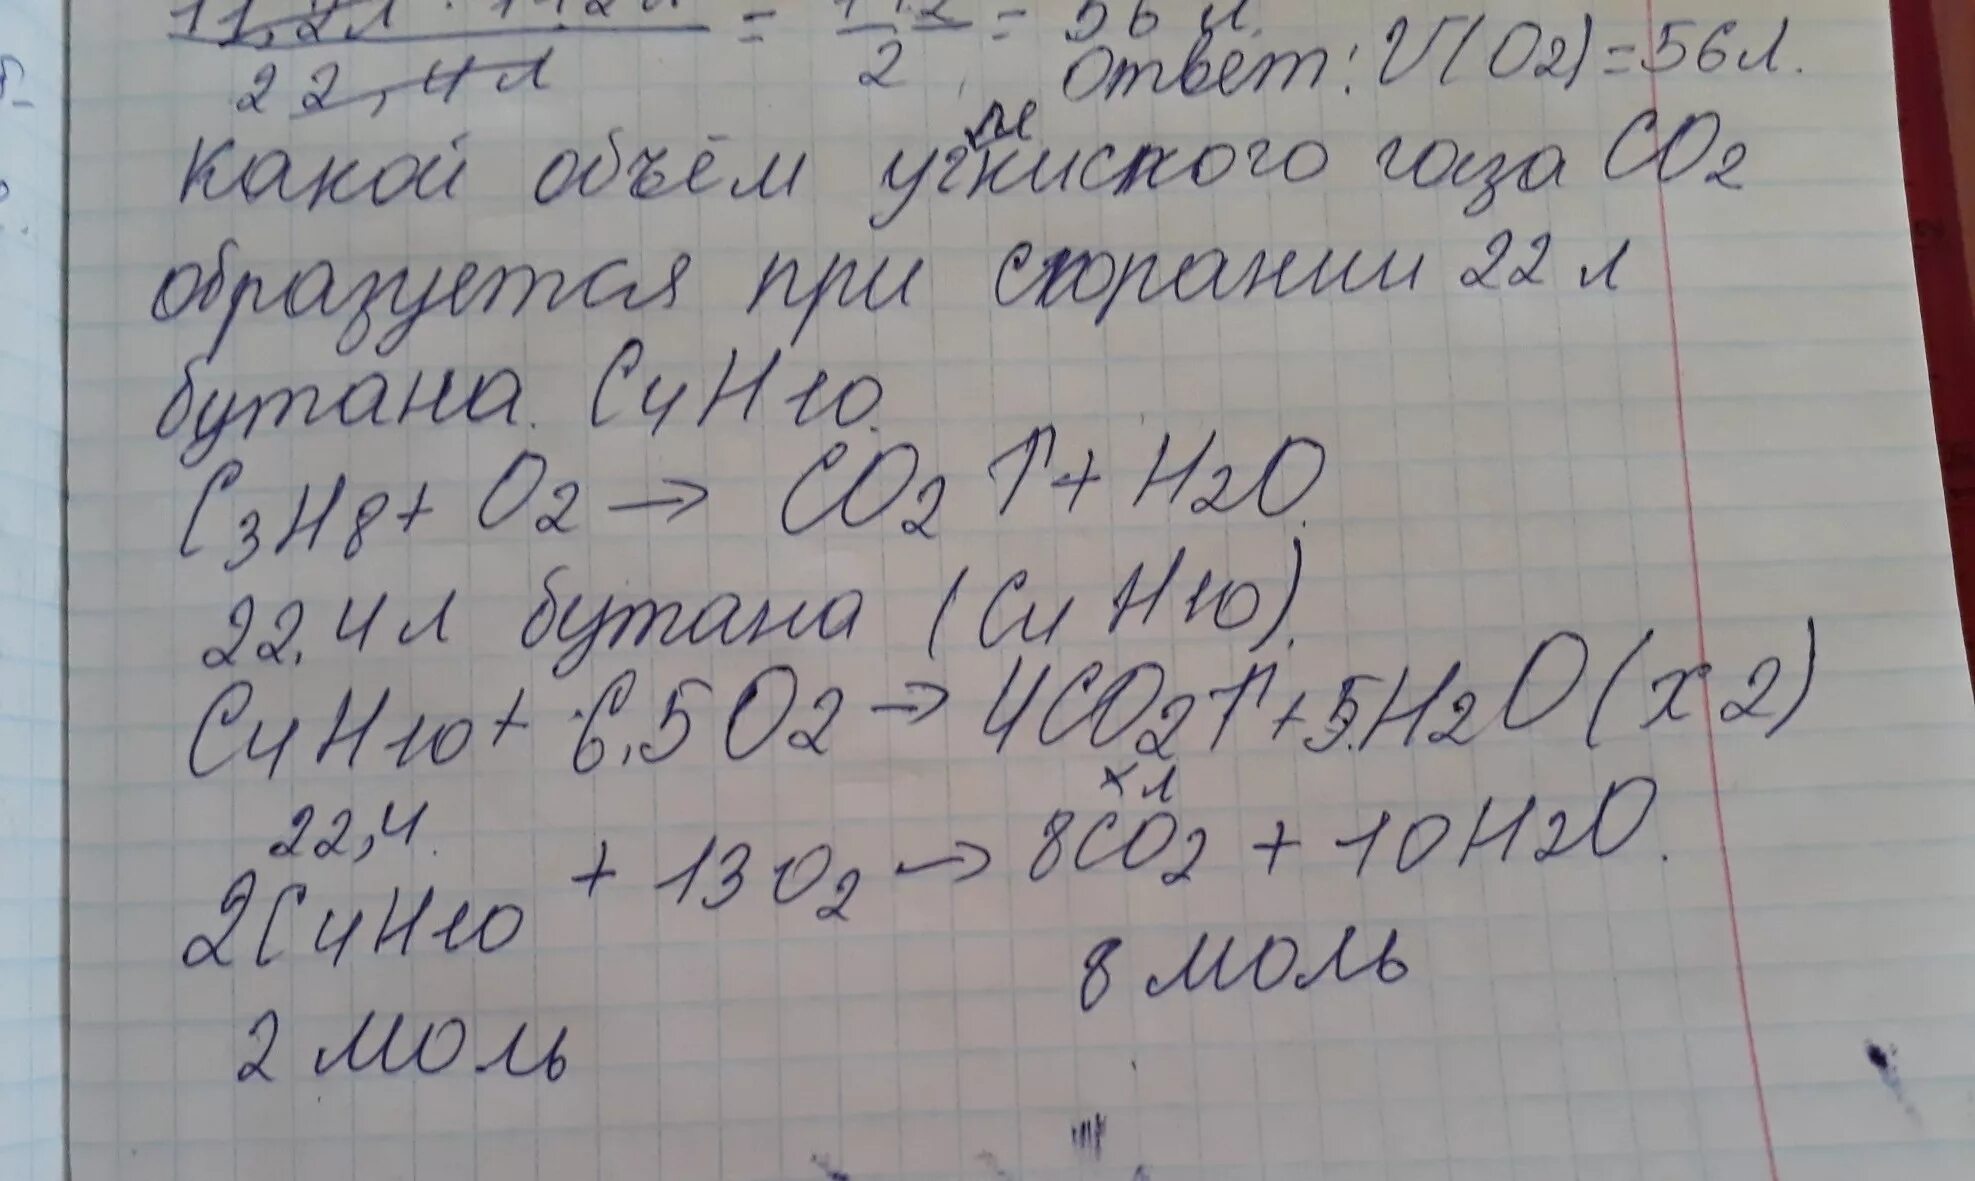 = = 56 л.
22,4л 2 Ответ: V(O2)=56л.
ле
какой объём угкиского газа CO2
образуется при скорании 22 л
бутана. C4H10.
C3H8+ O2 → CO2 ↑+ H2O.
22,4л бутана (C4H10).
C4H10+ 6,5O2 → 4CO2↑+5H2O(x2)
22,4. xл
2C4H10 + 13O2 → 8CO2 + 10H2O.
2 моль 8 моль